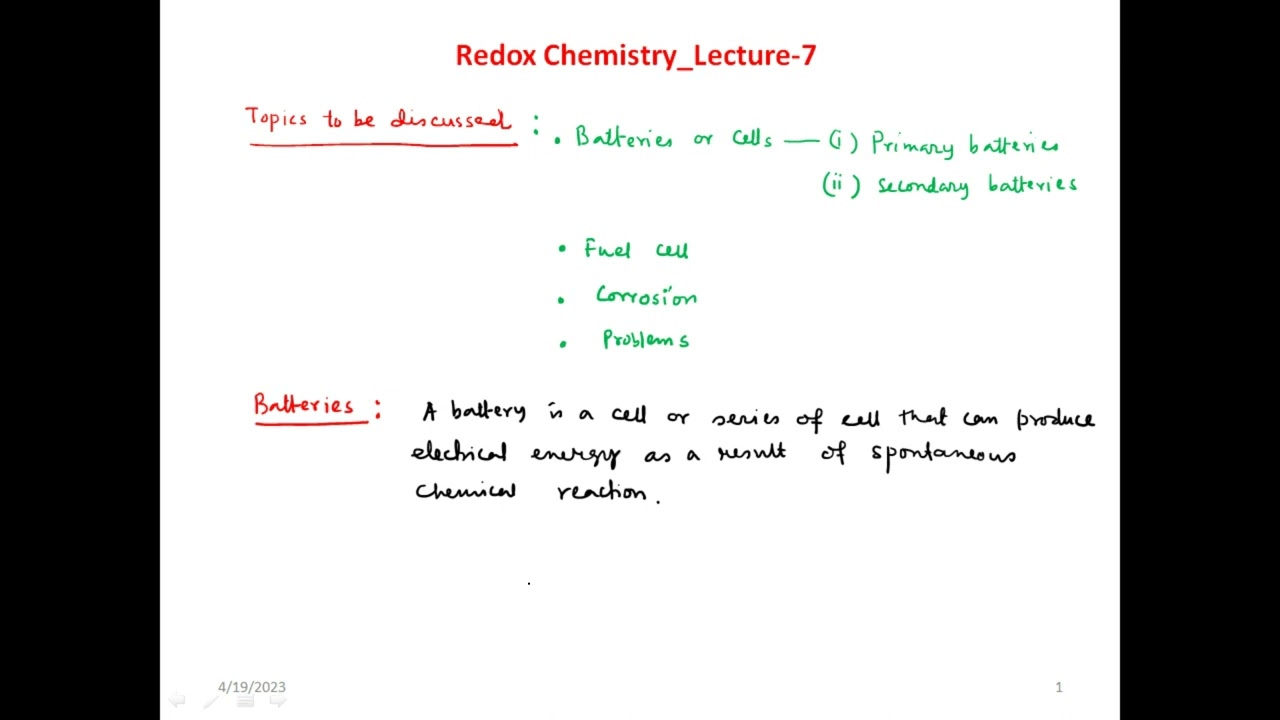 Redox Chemistry_Lecture-7
Topics to be discussed :
• Batteries or cells — (i) Primary batteries
(ii) Secondary batteries
• Fuel cell
• Corrosion
• Problems
Batteries : A battery is a cell or series of cell that can produce
electrical energy as a result of spontaneous
chemical reaction.
4/19/2023
1